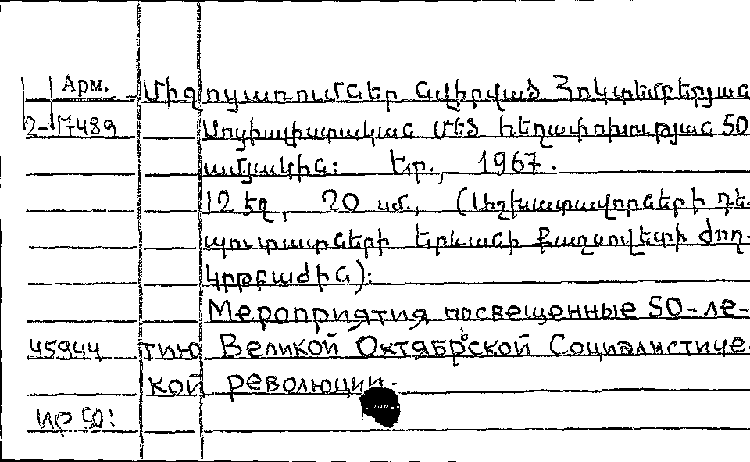 Арм. Միջոցառումներ նվիրված Հոկտեմբերյան
2-17489 Սոցիալիստական Մեծ հեղափոխության 50
ամյակին: Եր., 1967.
12 էջ, 20 սմ., (Աշխատավորների դե-
պուտատների Երևանի քաղսովետի ժող-
կրթբաժին):
Мероприятия посвещенные 50-ле-
45944 тию Великой Октябрьской Социалистиче.
кой революции.